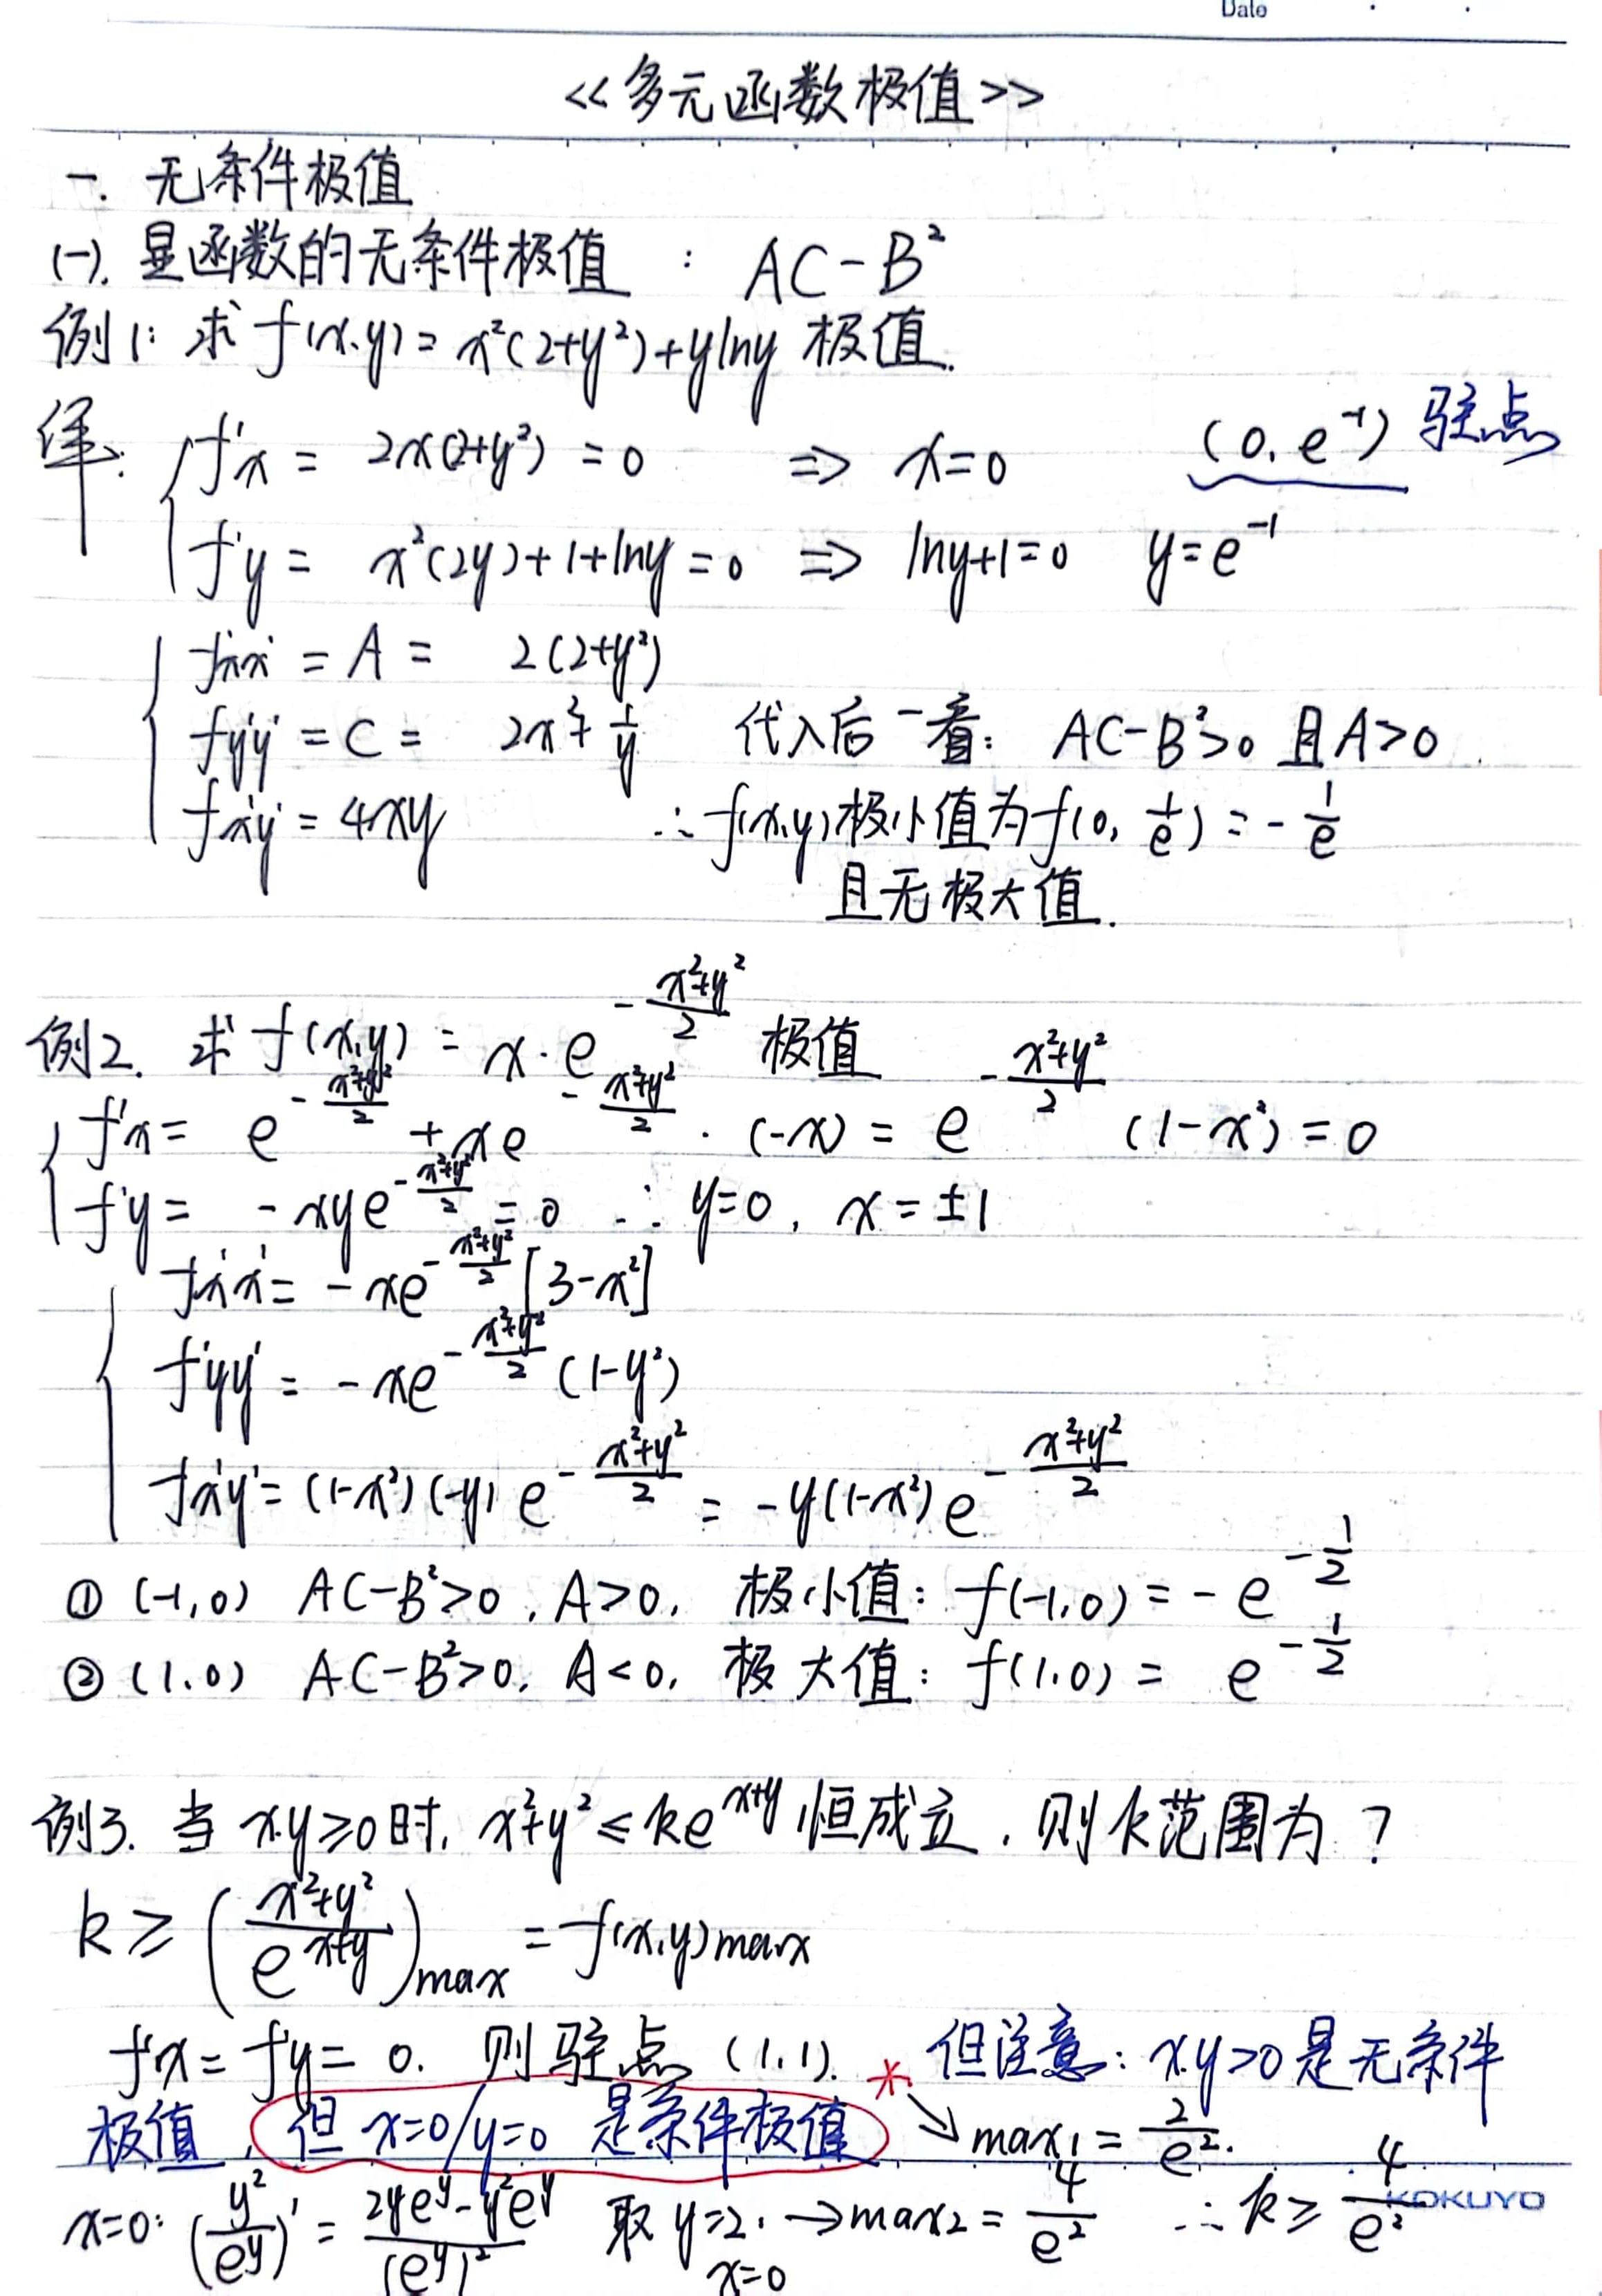 Date
<<多元函数极值>>
一. 无条件极值
(一). 显函数的无条件极值 : AC-B²
例1: 求 f(x,y)= x²(2+y²)+ylny 极值.
解: f'x = 2x(2+y²) = 0 ⇒ x=0 (0, e⁻¹) 驻点
f'y = x²(2y)+1+lny = 0 ⇒ lny+1=0 y=e⁻¹
f''xx = A = 2(2+y²)
f''yy = C = 2x²+1/y 代入后一看: AC-B²>0 且A>0.
f''xy = 4xy ∴ f(x,y)极小值为f(0, 1/e) = -1/e
且无极大值.
例2. 求 f(x,y) = x·e^(-(x²+y²)/2) 极值
f'x = e^(-(x²+y²)/2) + xe^(-(x²+y²)/2)·(-x) = e^(-(x²+y²)/2) (1-x²) = 0
f'y = -xye^(-(x²+y²)/2) = 0 ∴ y=0, x=±1
f''xx = -xe^(-(x²+y²)/2) [3-x²]
f''yy = -xe^(-(x²+y²)/2) (1-y²)
f''xy = (1-x²)(-y) e^(-(x²+y²)/2) = -y(1-x²) e^(-(x²+y²)/2)
① (-1,0) AC-B²>0, A>0, 极小值: f(-1,0) = -e^(-1/2)
② (1,0) AC-B²>0, A<0, 极大值: f(1,0) = e^(-1/2)
例3. 当 x,y≥0时, x²+y² ≤ ke^(x+y) 恒成立, 则k范围为?
k ≥ ((x²+y²)/e^(x+y))max = f(x,y)max
f'x = f'y = 0. 则驻点 (1,1). * 但注意: x,y>0是无条件
极值, 但 x=0/y=0 是条件极值 ↘ max₁ = 2/e².
x=0: (y²/e^y)' = (2ye^y-y²e^y)/(e^y)² 取 y=2. → max₂ = 4/e² ∴ k ≥ 4/e²
x=0
KOKUYO